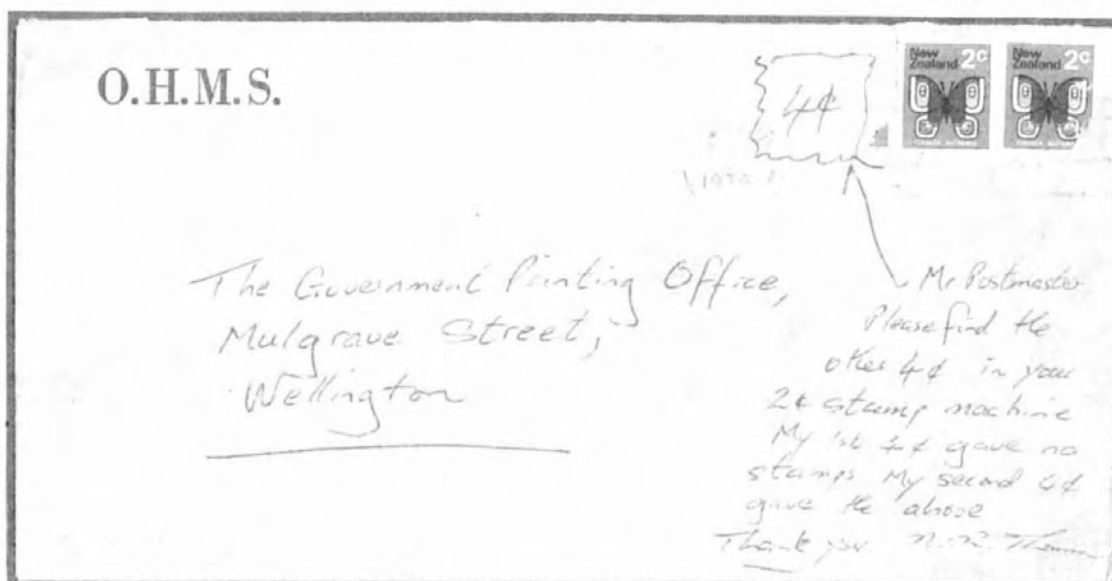 O.H.M.S.
4¢
New Zealand 2c
New Zealand 2c
The Government Printing Office,
Mulgrave Street,
Wellington
Mr Postmaster
Please find the
other 4¢ in your
2¢ stamp machine
My 1st 4¢ gave no
stamps My second 4¢
gave the above
Thank you